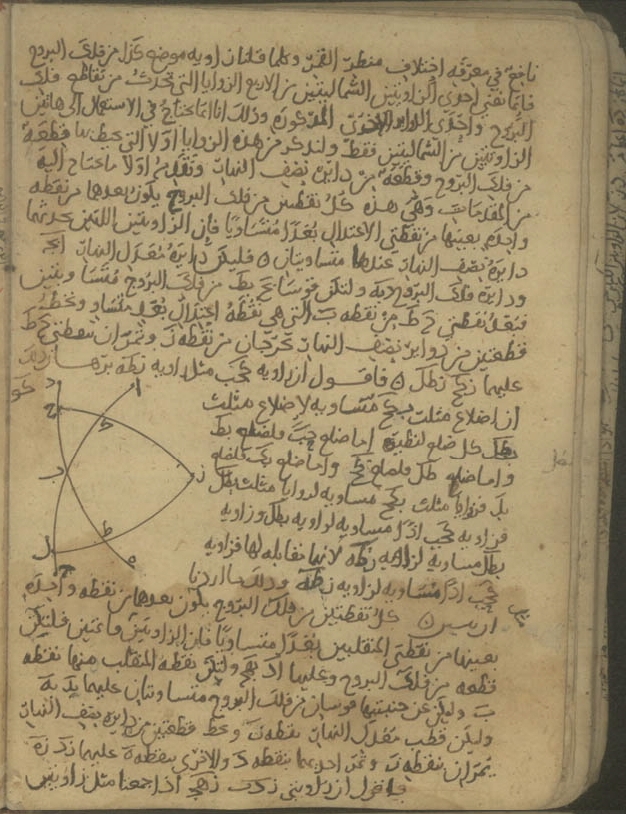 نافعة في معرفة اختلاف منظر القمر وكلما قلنا زاوية موضع كذا من فلك البروج
فانما نعني احدى الزاويتين الشماليتين من الاربع الزوايا التي تحدث من تقاطع فلك
البروج واحدى الدواير المذكورة وذلك انا انما نحتاج في الاستعمال الى هاتين
الزاويتين الشماليتين فقط ولنذكر من هذه الزوايا اولا التي يحيط بها قطعة
من فلك البروج وقطعة من دايرة نصف النهار ونقدم اولا ما يحتاج اليه
من المقدمات وهي هذه كل نقطتين من فلك البروج يكون بعدهما من نقطة
واحدة بعينها من نقطتي الاعتدال بعدا متساويا فان الزاويتين اللتين تحدثهما
دايرة نصف النهار عندهما متساويتان فليكن دايرة معدل النهار ابج
ودايرة فلك البروج دبه ولتكن قوسا بح بط من فلك البروج متساويتين
فبعد نقطتي ح ط من نقطة ب التي هي نقطة اعتدال بعد متساو ونخط
قطعتين من دواير نصف النهار تخرجان من نقطة ز وتمران بنقطتي ح ط
عليهما زكح زطل فاقول ان زاوية كحب مثل زاوية زطه برهان ذلك
ان اضلاع مثلث بكح متساوية لاضلاع مثلث
بطل كل ضلع لنظيره اما ضلع حب فلضلع بط
واما ضلع طل فلضلع كح واما ضلع بك فلضلع
بل فزوايا مثلث بكح مساوية لزوايا مثلث بطل
فزاوية كحب اذا مساوية لزاوية بطل وزاوية
بطل مساوية لزاوية زطه لانها مقابلة لها فزاوية
كحب اذا مساوية لزاوية زطه وذلك ما اردنا
ان نبين كل نقطتين من فلك البروج يكون بعدهما من نقطة واحدة
بعينها من نقطتي المنقلبين بعدا متساويا فان الزاويتين فلتكن
قطعة من فلك البروج وعليها ابج ولتكن نقطة المنقلب منها نقطة
ب وليكن عن جنبتيها قوسان من فلك البروج متساويتان عليهما بد به
وليكن قطب معدل النهار نقطة ز ونخط قطعتين من دايرة نصف النهار
يمران بنقطة ز وتمر احديهما بنقطة د والاخرى بنقطة ه عليهما زد زه
فاقول ان زاويتي زدب زهج اذا جمعتا مثل زاويتين